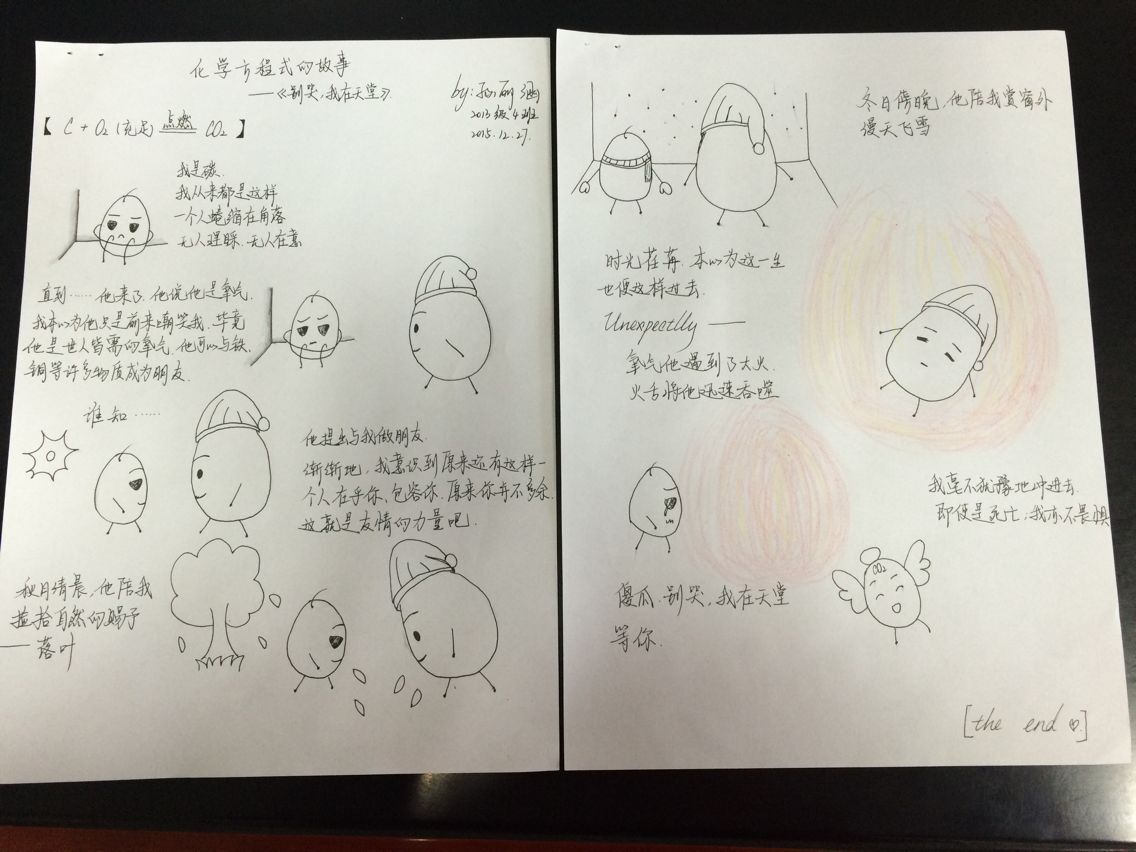 化学方程式的故事
——《别哭,我在天堂》
by:
2013级4班
2015.12.27.
【 C + O2 (充足) 点燃 CO2 】
我是碳.
我从来都是这样
一个人蜷缩在角落
无人理睬.无人在意
直到……他来了.他说他是氧气.
我本以为他只是前来嘲笑我.毕竟
他是世人皆需的氧气.他可以与铁.
铜等许多物质成为朋友.
谁知……
他提出与我做朋友.
渐渐地,我意识到原来还有这样一
个人在乎你、包容你.原来你并不多余.
这就是友情的力量吧.
秋日清晨,他陪我
捡拾自然的赐予
——落叶
冬日傍晚,他陪我赏窗外
漫天飞雪
时光荏苒.本以为这一生
也便这样过去.
Unexpectlly ——
氧气他遇到了大火.
火舌将他迅速吞噬
我毫不犹豫地冲进去.
即便是死亡,我亦不畏惧
CO2
傻瓜.别哭,我在天堂
等你.
[the end ♡.]